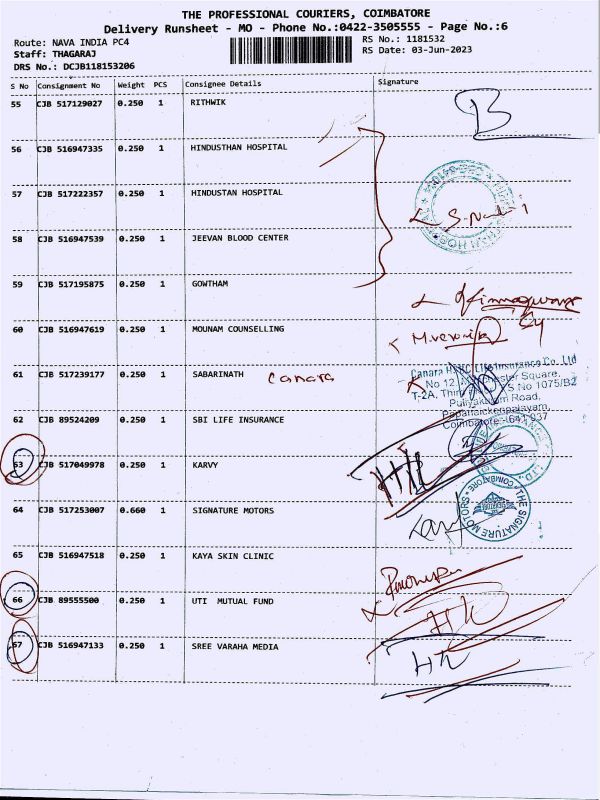 THE PROFESSIONAL COURIERS, COIMBATORE
Delivery Runsheet - MO - Phone No.:0422-3505555 - Page No.:6
Route: NAVA INDIA PC4 RS No.: 1181532
Staff: THAGARAJ RS Date: 03-Jun-2023
DRS No.: DCJB118153206
S No Consignment No Weight PCS Consignee Details Signature
55 CJB 517129027 0.250 1 RITHWIK B
56 CJB 516947335 0.250 1 HINDUSTHAN HOSPITAL
57 CJB 517222357 0.250 1 HINDUSTAN HOSPITAL
58 CJB 516947539 0.250 1 JEEVAN BLOOD CENTER
59 CJB 517195875 0.250 1 GOWTHAM
60 CJB 516947619 0.250 1 MOUNAM COUNSELLING
61 CJB 517239177 0.250 1 SABARINATH Canara
Canara HSBC Life Insurance Co. Ltd
62 CJB 89524209 0.250 1 SBI LIFE INSURANCE
63 CJB 517049978 0.250 1 KARVY
64 CJB 517253007 0.660 1 SIGNATURE MOTORS
THE SIGNATURE MOTORS COIMBATORE
65 CJB 516947518 0.250 1 KAYA SKIN CLINIC
66 CJB 89555500 0.250 1 UTI MUTUAL FUND
67 CJB 516947133 0.250 1 SREE VARAHA MEDIA